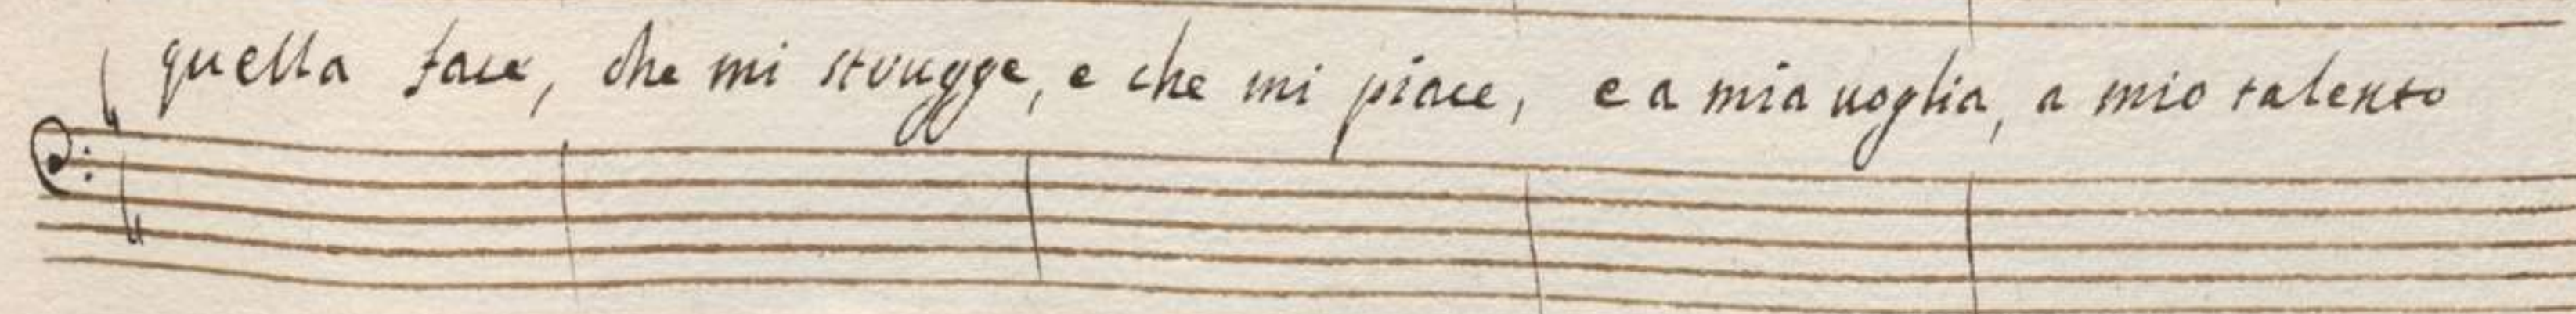 quella face, che mi strugge, e che mi piace, e a mia uoglia, a mio talento